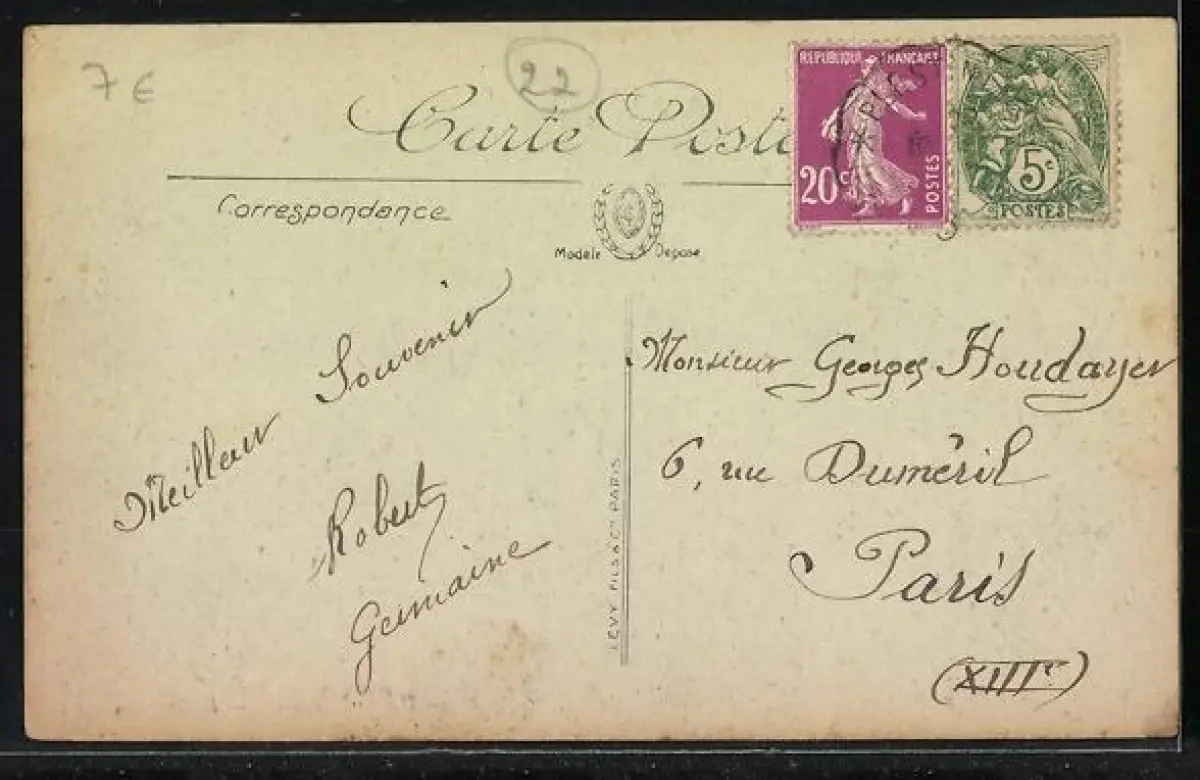 7 €
22
Carte Posta
RÉPUBLIQUE FRANÇAISE
20 c
POSTES
5 c
POSTES
Correspondance
Modèle Déposé
Meilleur Souvenir
Robert
Germaine
LÉVY FILS & Cie PARIS
Monsieur Georges Houdayer
6, rue Duméril
Paris
(XIIIe)